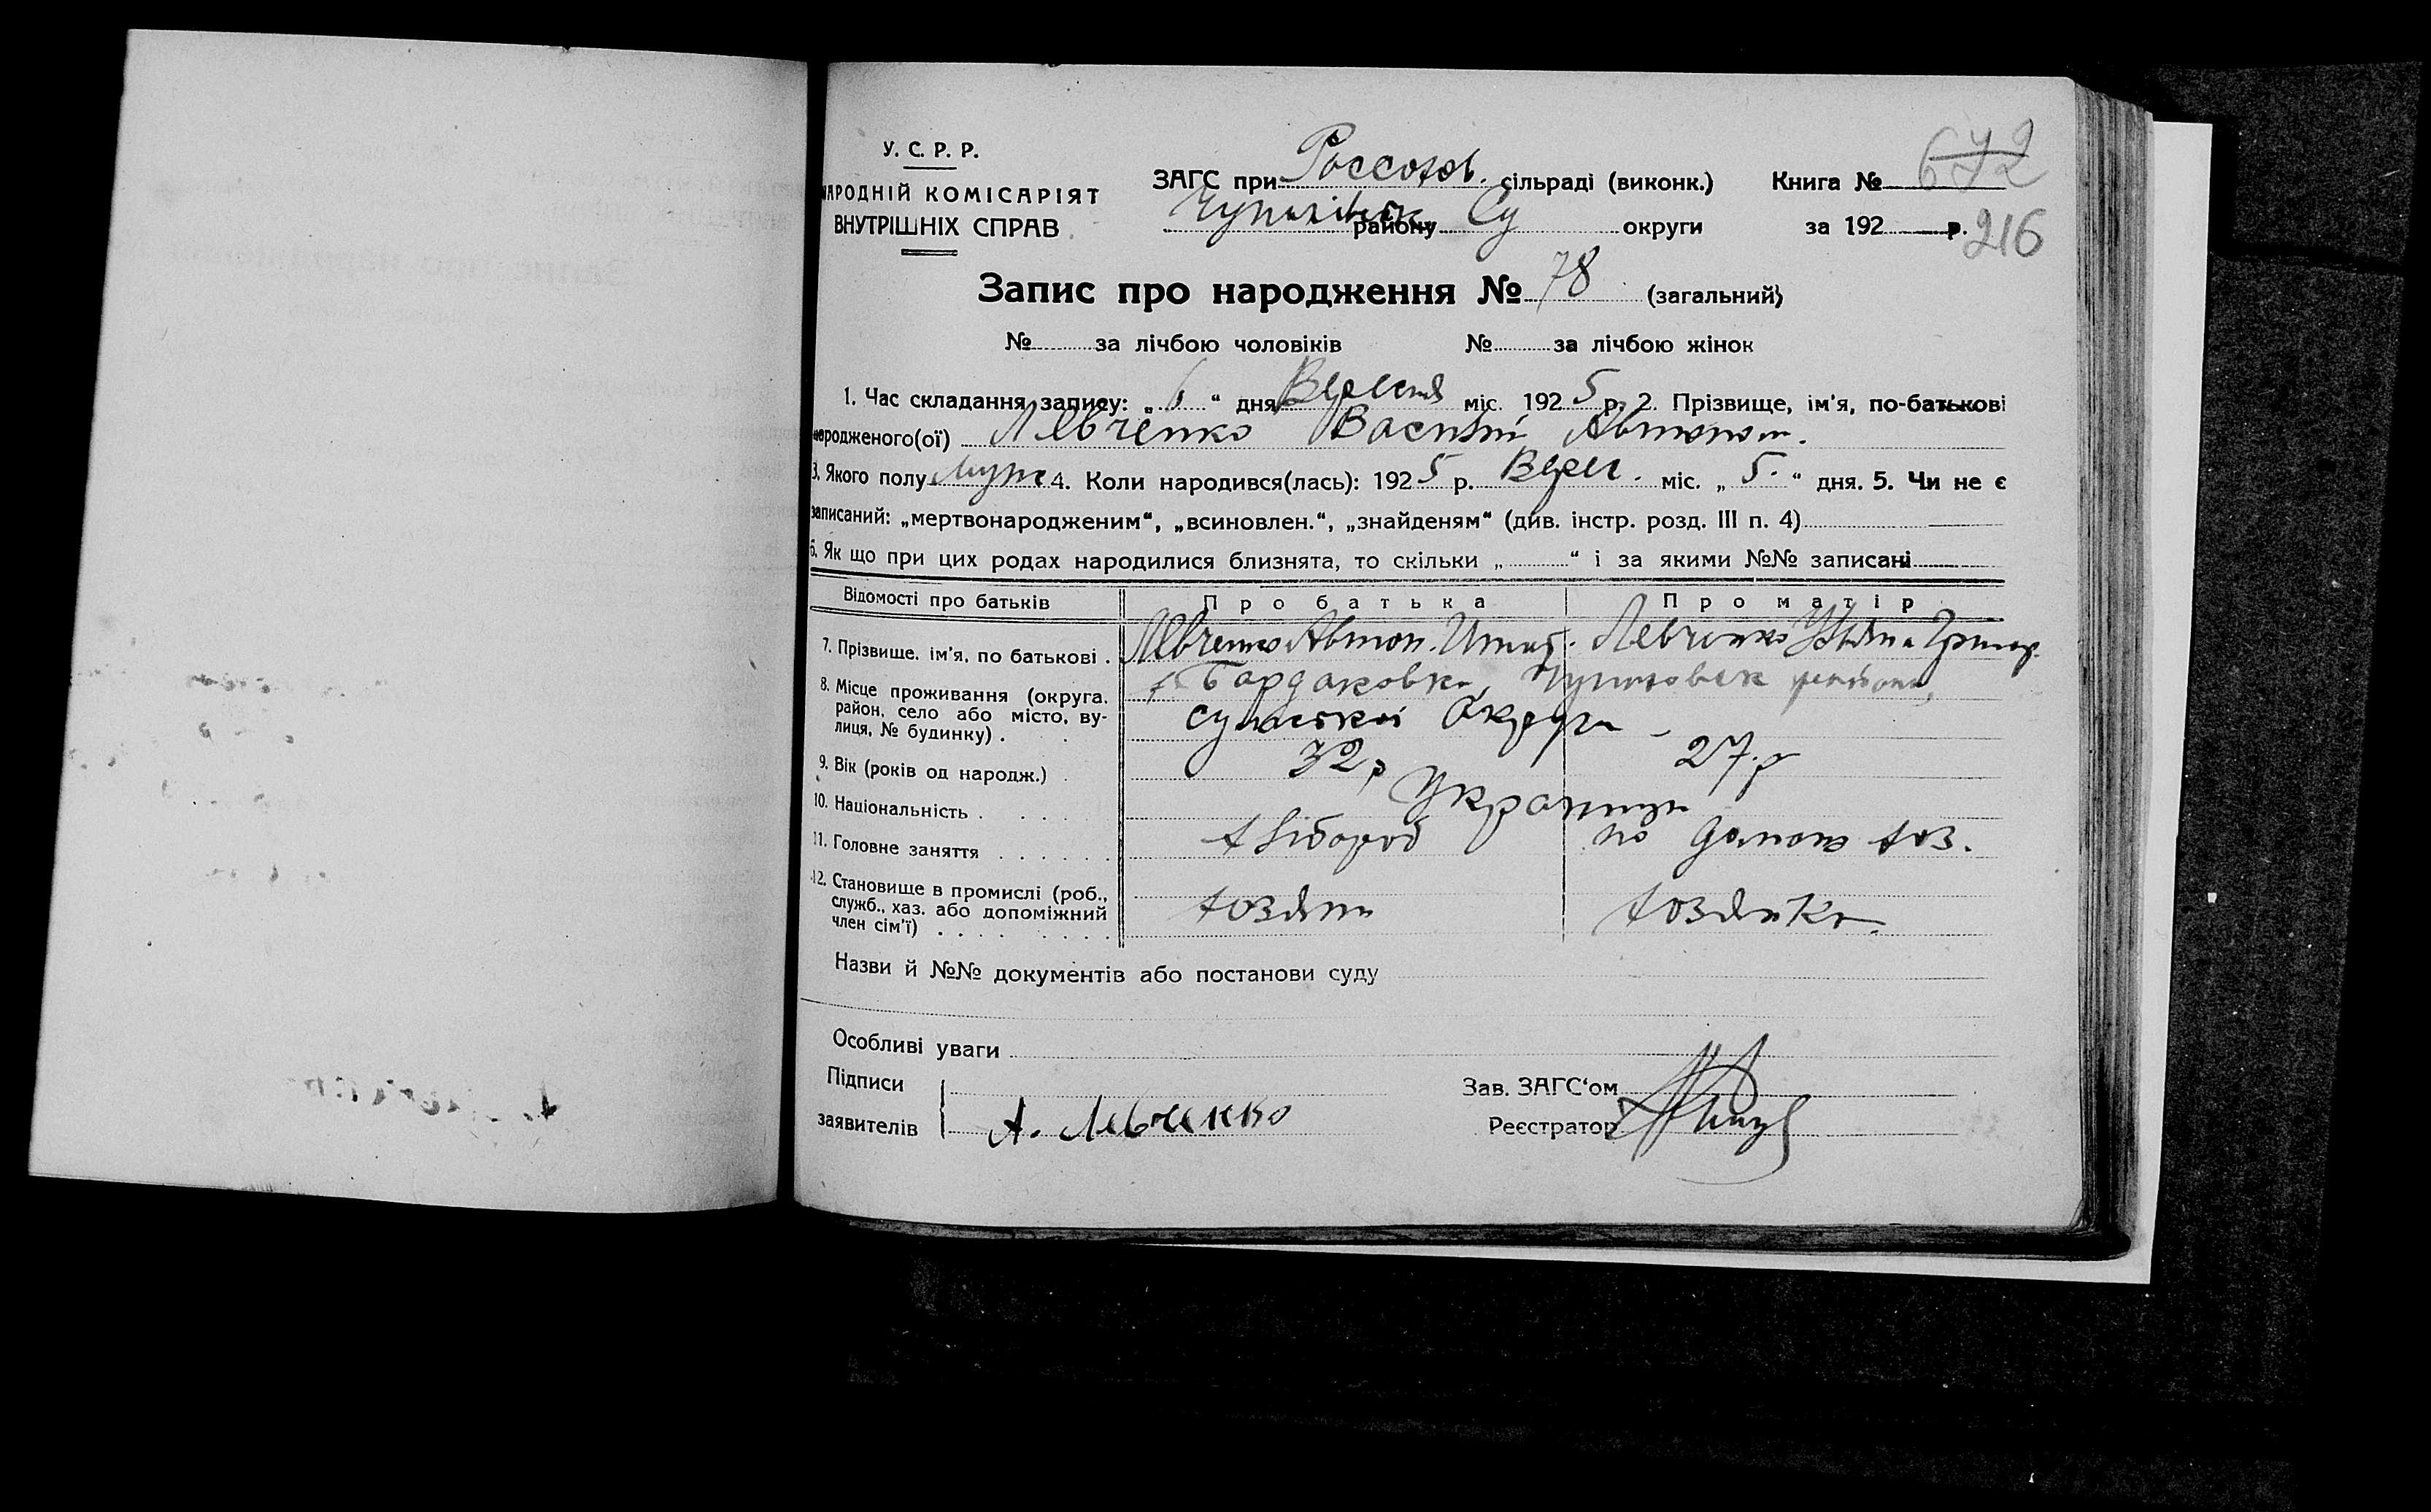 У. С. Р. Р.
НАРОДНІЙ КОМІСАРІЯТ
ВНУТРІШНІХ СПРАВ
ЗАГС при Россохов. сільраді (виконк.) Книга № 672
району Су округи за 192 р. 216
Запис про народження № 78 (загальний)
№ за лічбою чоловіків № за лічбою жінок
1. Час складання запису: „ 6 “ дня Вересня міс. 192 5 р. 2. Прізвище, ім'я, по-батькові
народженого(ої) Левченко Василій Автоном.
3. Якого полу Муж 4. Коли народився(лась): 192 5 р. Верес. міс. „ 5. “ дня. 5. Чи не є
записаний: „мертвонародженим“, „всиновлен.“, „знайденям“ (див. інстр. розд. III п. 4)
6. Як що при цих родах народилися близнята, то скільки „ “ і за якими №№ записані
Відомості про батьків Про батька Про матір
7. Прізвище, ім'я, по батькові . Левченко Автон. Игнат. Левченко Ульяна Григор.
8. Місце проживання (округа, х. Бардаковка, района,
район, село або місто, ву- Сумської Округи
лиця, № будинку) .
9. Вік (років од народж.) . 32 р 27 р
10. Національність . . . . . Українці
11. Головне заняття . . . . . . хлібороб по домаш хоз.
12. Становище в промислі (роб., хозяин хозяйка.
служб., хаз. або допоміжний
член сім'ї) . . . . . . . .
Назви й №№ документів або постанови суду
Особливі уваги
Підписи Зав. ЗАГС‘ом
заявителів А. Левченко Реєстратор